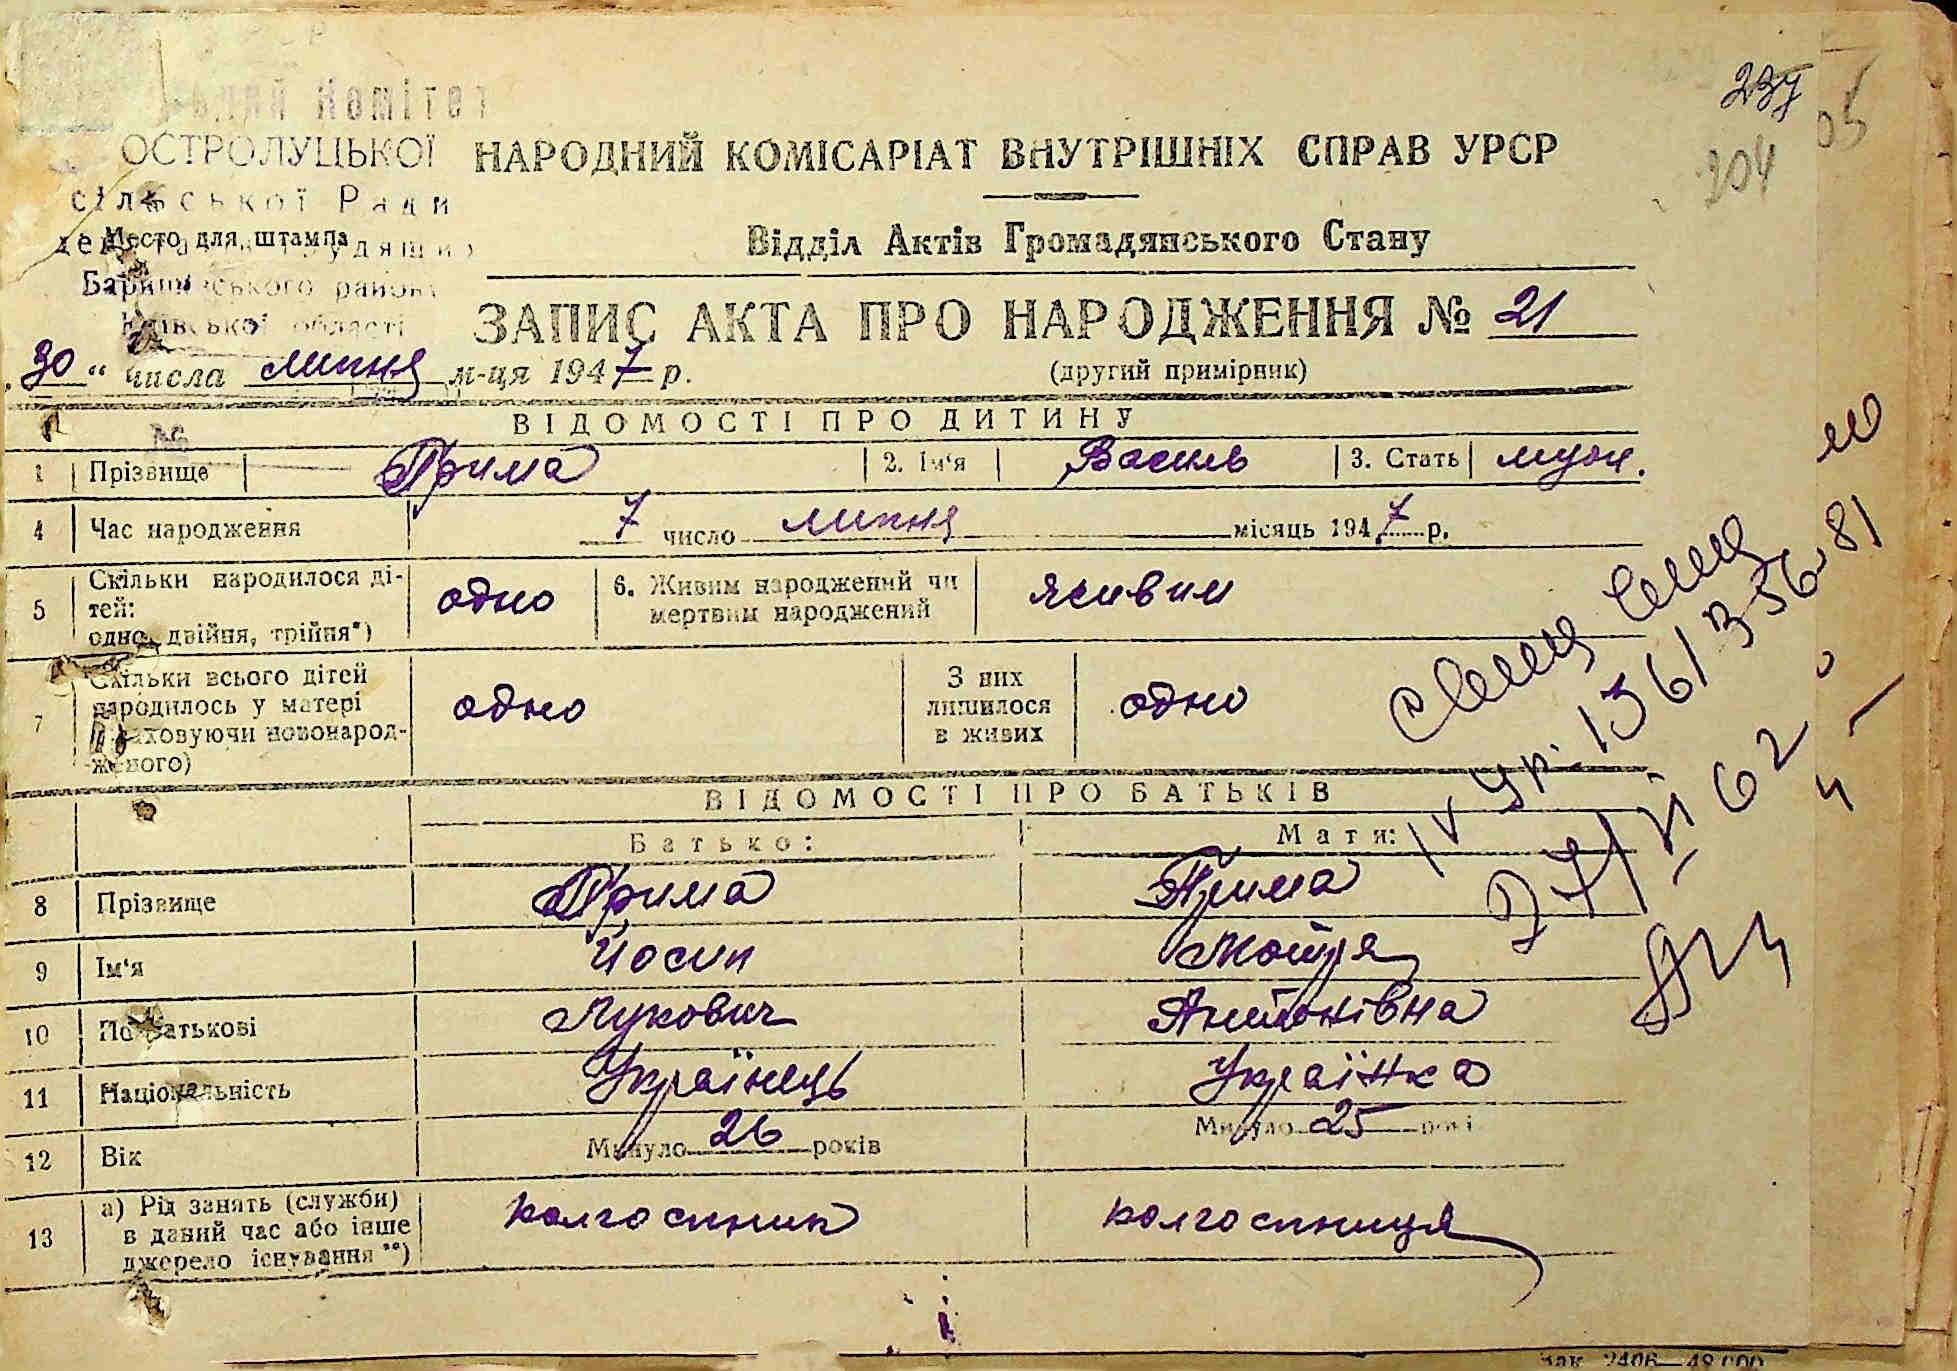 237
204
05
Комітет
ОСТРОЛУЦЬКОЇ
сільської Ради
Место для штампа
Баришівського району
Київської області
НАРОДНИЙ КОМІСАРІАТ ВНУТРІШНІХ СПРАВ УРСР
Відділ Актів Громадянського Стану
ЗАПИС АКТА ПРО НАРОДЖЕННЯ № 21
„30" числа липня м-ця 1947 р.
(другий примірник)
№
ВІДОМОСТІ ПРО ДИТИНУ
1 Прізвище Прима 2. Ім'я Василь 3. Стать муж.
4 Час народження 7 число липня місяць 1947 р.
5 Скільки народилося ді-
тей:
одно, двійня, трійня*) одно 6. Живим народжений чи
мертвим народжений живим
7 Скільки всього дітей
народилось у матері
(враховуючи новонарод-
женого) одно З них
лишилося
в живих одно
ВІДОМОСТІ ПРО БАТЬКІВ
Батько: Мати:
8 Прізвище Прима Прима
9 Ім'я Йосип Мотря
10 По батькові Лукович Антонівна
11 Національність Українець Українка
12 Вік Минуло 26 років Минуло 25 років
13 а) Рід занять (служби)
в даний час або інше
джерело існування**) колгоспник колгоспниця
Зак. 2406—48.000